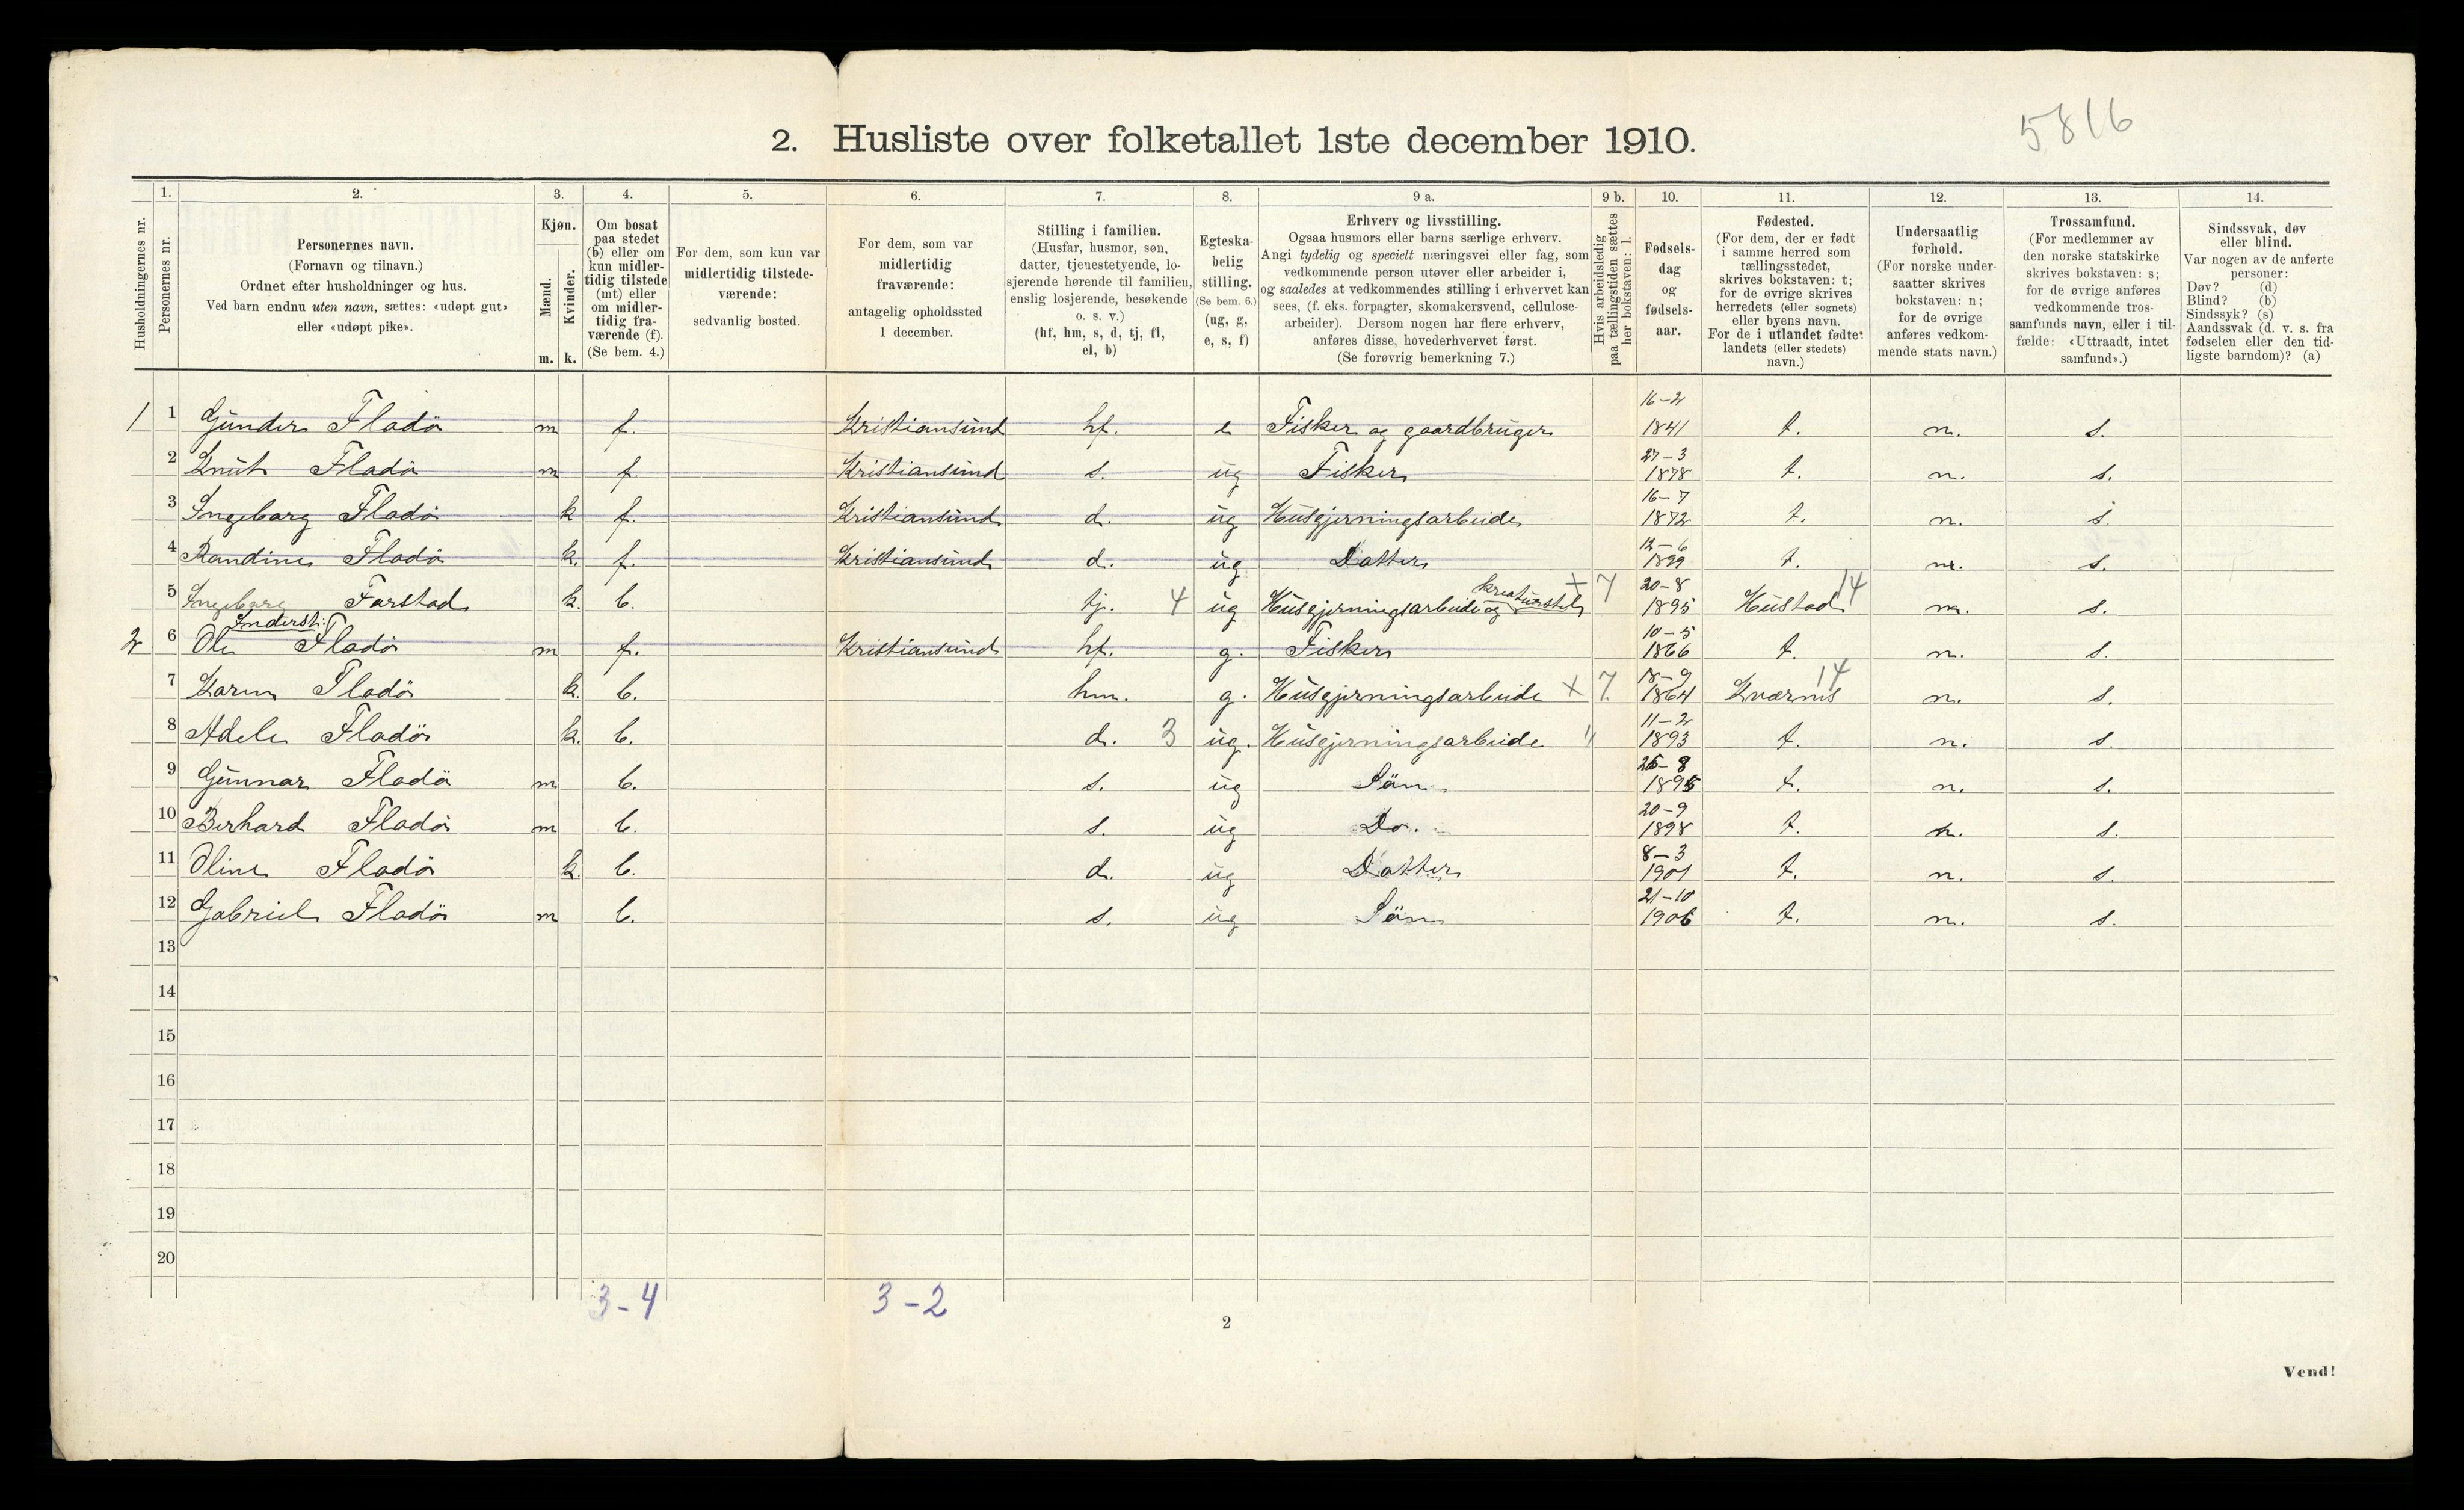 5816
2. Husliste over folketallet 1ste december 1910.
Husholdningernes nr.
1. Personernes nr.
2. Personernes navn. (Fornavn og tilnavn.) Ordnet efter husholdninger og hus. Ved barn endnu uten navn, sættes: «udøpt gut» eller «udøpt pike».
3. Kjøn. Mænd. m. Kvinder. k.
4. Om bosat paa stedet (b) eller om kun midlertidig tilstede (mt) eller om midlertidig fraværende (f). (Se bem. 4.)
5. For dem, som kun var midlertidig tilstedeværende: sedvanlig bosted.
6. For dem, som var midlertidig fraværende: antagelig opholdssted 1 december.
7. Stilling i familien. (Husfar, husmor, søn, datter, tjenestetyende, losjerende hørende til familien, enslig losjerende, besøkende o. s. v.) (hf, hm, s, d, tj, fl, el, b)
8. Egteskabelig stilling. (Se bem. 6.) (ug, g, e, s, f)
9 a. Erhverv og livsstilling. Ogsaa husmors eller barns særlige erhverv. Angi tydelig og specielt næringsvei eller fag, som vedkommende person utøver eller arbeider i, og saaledes at vedkommendes stilling i erhvervet kan sees, (f. eks. forpagter, skomakersvend, cellulosearbeider). Dersom nogen har flere erhverv, anføres disse, hovederhvervet først. (Se forøvrig bemerkning 7.)
9 b. Hvis arbeidsledig paa tællingstiden sættes her bokstaven: l.
10. Fødselsdag og fødselsaar.
11. Fødested. (For dem, der er født i samme herred som tællingsstedet, skrives bokstaven: t; for de øvrige skrives herredets (eller sognets) eller byens navn. For de i utlandet fødte: landets (eller stedets) navn.)
12. Undersaatlig forhold. (For norske undersaatter skrives bokstaven: n; for de øvrige anføres vedkommende stats navn.)
13. Trossamfund. (For medlemmer av den norske statskirke skrives bokstaven: s; for de øvrige anføres vedkommende trossamfunds navn, eller i tilfælde: «Uttraadt, intet samfund».)
14. Sindssvak, døv eller blind. Var nogen av de anførte personer: Døv? (d) Blind? (b) Sindssyk? (s) Aandssvak (d. v. s. fra fødselen eller den tidligste barndom)? (a)
1 1 Gunder Fladö m f. Kristiansund hf. e Fisker og gaardbruger 16-2 1841 t. n. s.
2 Knut Fladö m f. Kristiansund s. ug Fisker 27-3 1878 t. n. s.
3 Ingeborg Fladö k f. Kristiansund d. ug Husgjerningsarbeide 16-7 1872 t. n. s.
4 Randine Fladö k. f. Kristiansund d. ug Datter 12-6 1899 t. n. s.
5 Ingeborg Farstad k. b. tj. 4 ug Husgjerningsarbeide og kreaturstel + 7 20-8 1895 Hustad 14 n. s.
Inderst:
2 6 Ole Fladö m f. Kristiansund hf. g. Fisker 10-5 1866 t. n. s.
7 Karen Fladö k. b. hm. g. Husgjerningsarbeide + 7 18-9 1864 Kværnes 14 n. s.
8 Adele Fladö k. b. d. 3 ug. Husgjerningsarbeide " 11-2 1893 t. n. s.
9 Gunnar Fladö m b. s. ug Sön 8 1895 t. n. s.
10 Berhard Fladö m b. s. ug Do. 20-9 1898 t. n. s.
11 Oline Fladö k. b. d. ug Datter 8-3 1901 t. n. s.
12 Gabriel Fladö m b. s. ug Sön 21-10 1906 t. n. s.
13
14
15
16
17
18
19
20
3-4 3-2
2
Vend!